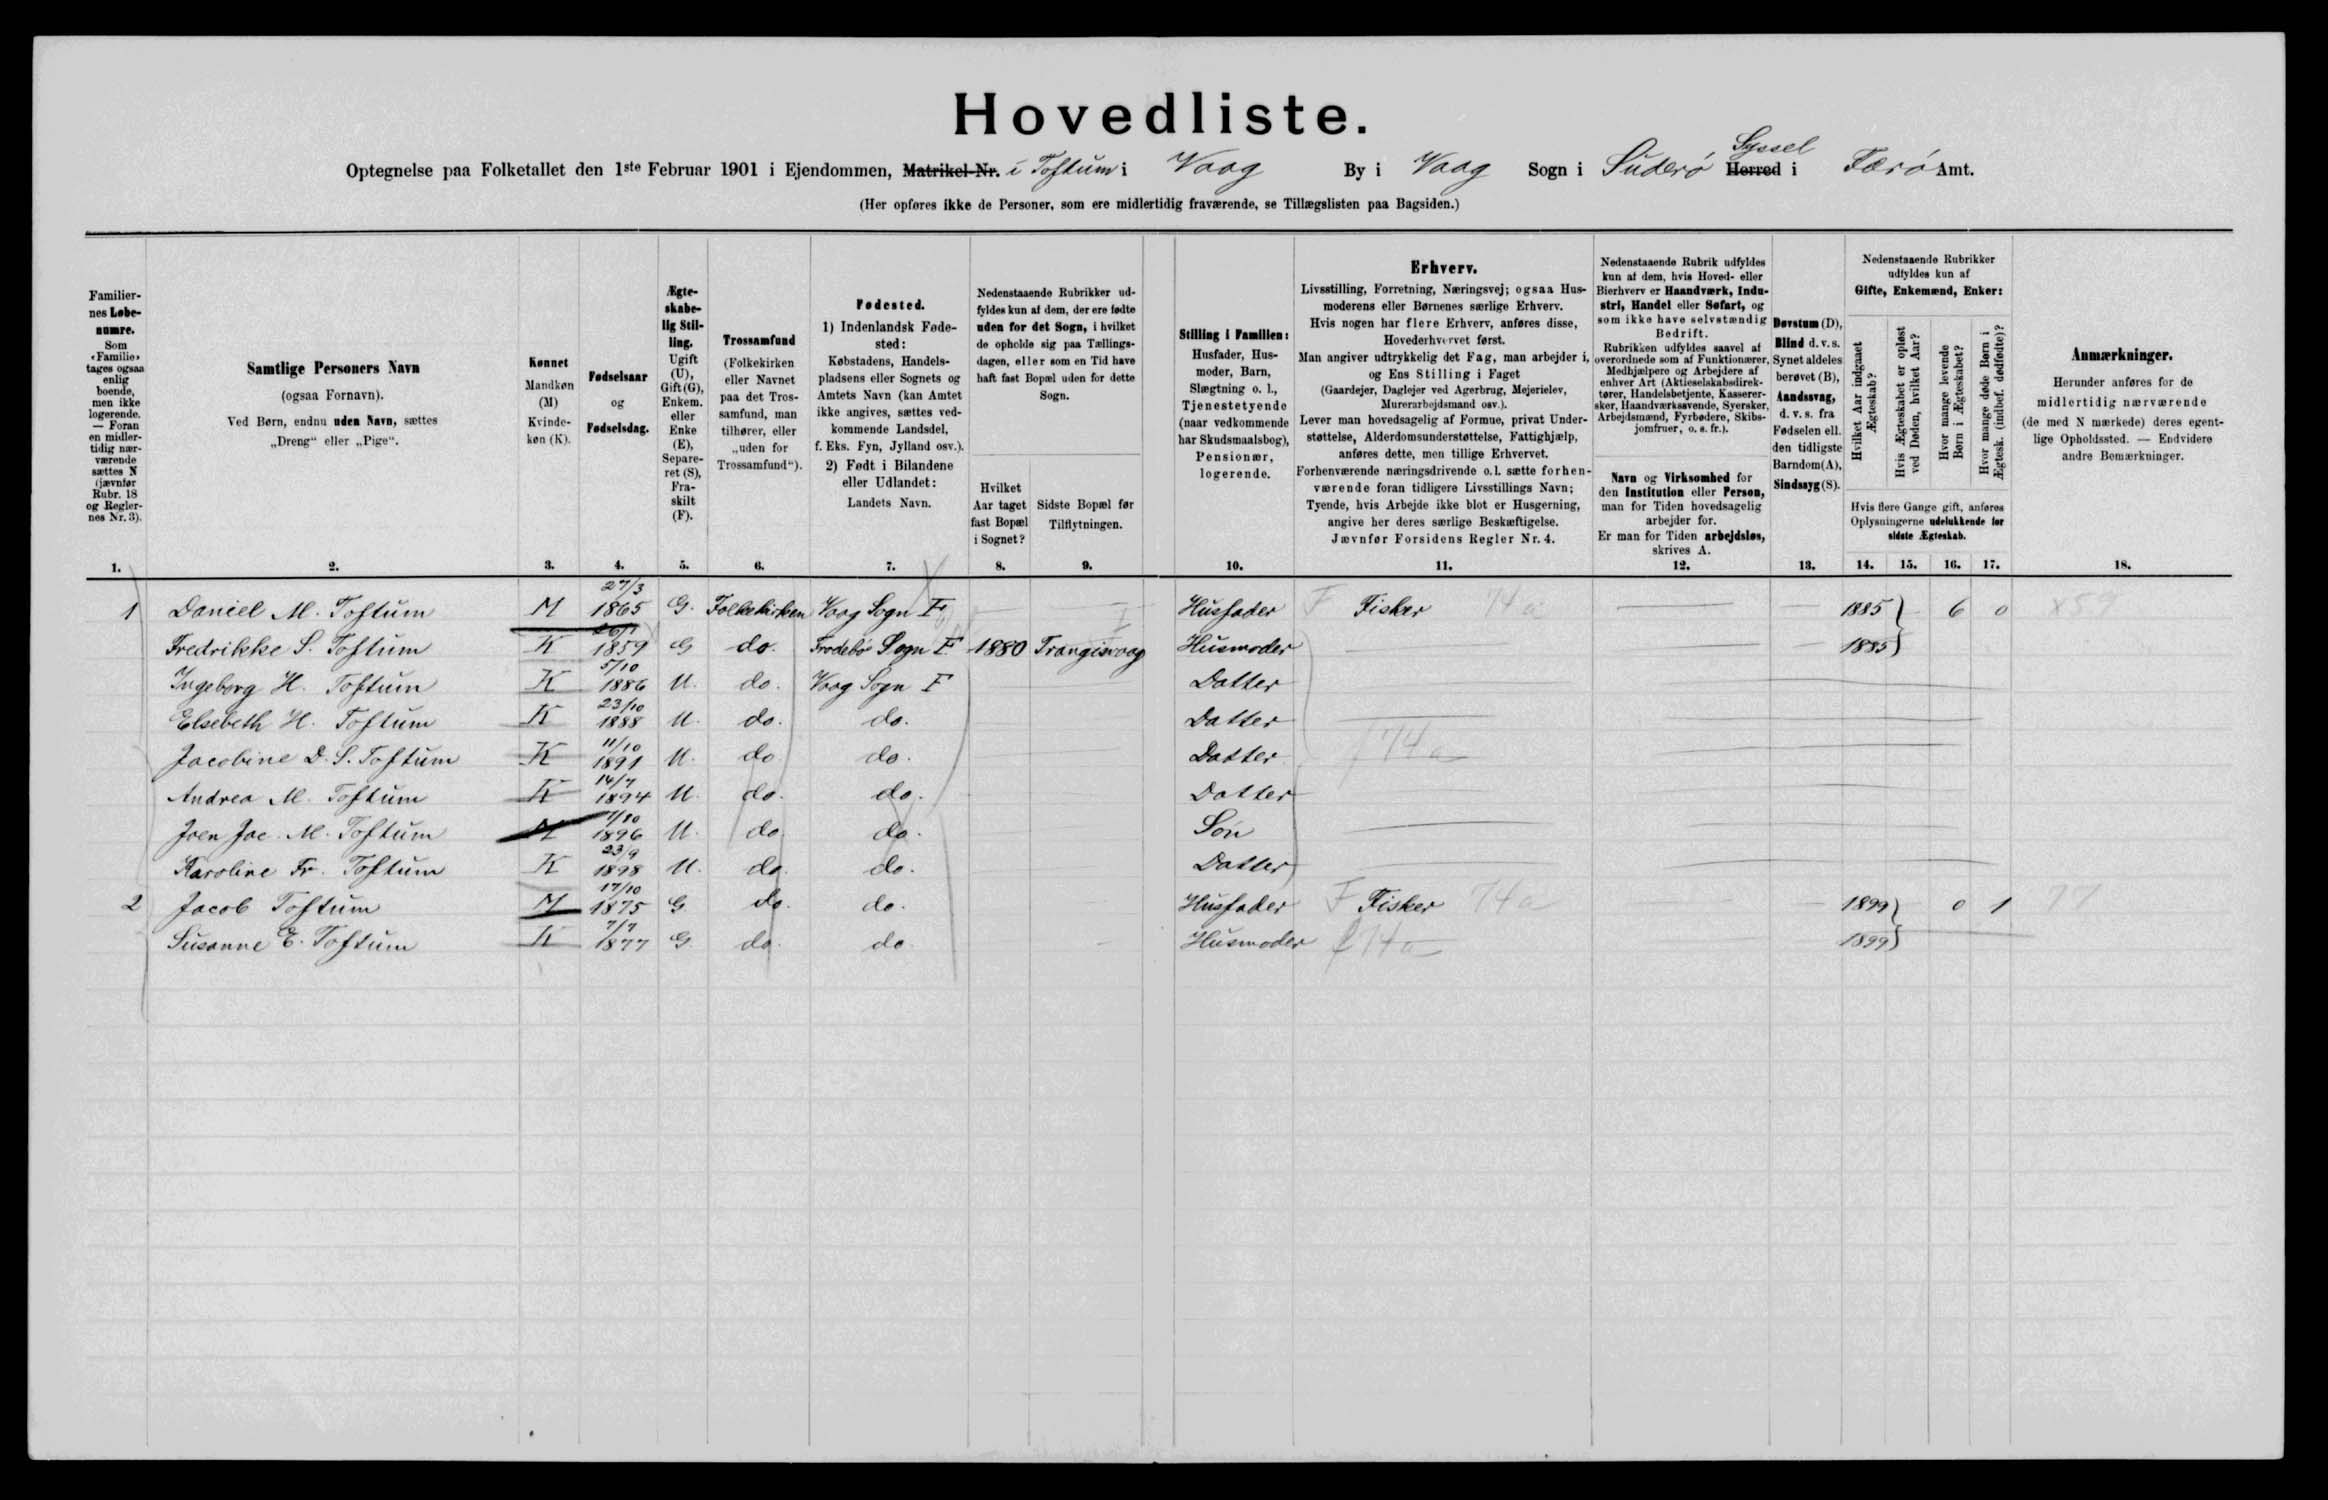 Hovedliste.
Optegnelse paa Folketallet den 1ste Februar 1901 i Ejendommen, Matrikel-Nr. i Toftum i Vaag By i Vaag Sogn i Suderø Herred Syssel i Færø Amt.
(Her opføres ikke de Personer, som ere midlertidig fraværende, se Tillægslisten paa Bagsiden.)
Familier-
nes Løbe-
numre.
Som
«Familie»
tages ogsaa
enlig
boende,
men ikke
logerende.
— Foran
en midler-
tidig nær-
værende
sættes N
(jævnfør
Rubr. 18
og Regler-
nes Nr. 3).
Samtlige Personers Navn
(ogsaa Fornavn).
Ved Børn, endnu uden Navn, sættes
„Dreng“ eller „Pige“.
Kønnet
Mandkøn
(M)
Kvinde-
køn (K).
Fødselsaar
og
Fødselsdag.
Ægte-
skabe-
lig Stil-
ling.
Ugift
(U),
Gift (G),
Enkem.
eller
Enke
(E),
Separe-
ret (S),
Fra-
skilt
(F).
Trossamfund
(Folkekirken
eller Navnet
paa det Tros-
samfund, man
tilhører, eller
„uden for
Trossamfund“).
Fødested.
1) Indenlandsk Føde-
sted:
Købstadens, Handels-
pladsens eller Sognets og
Amtets Navn (kan Amtet
ikke angives, sættes ved-
kommende Landsdel,
f. Eks. Fyn, Jylland osv.).
2) Født i Bilandene
eller Udlandet:
Landets Navn.
Nedenstaaende Rubrikker ud-
fyldes kun af dem, der ere fødte
uden for det Sogn, i hvilket
de opholde sig paa Tællings-
dagen, eller som en Tid have
haft fast Bopæl uden for dette
Sogn.
Hvilket
Aar taget
fast Bopæl
i Sognet?
Sidste Bopæl før
Tilflytningen.
Stilling i Familien:
Husfader, Hus-
moder, Barn,
Slægtning o. l.,
Tjenestetyende
(naar vedkommende
har Skudsmaalsbog),
Pensionær,
logerende.
Erhverv.
Livsstilling, Forretning, Næringsvej; ogsaa Hus-
moderens eller Børnenes særlige Erhverv.
Hvis nogen har flere Erhverv, anføres disse,
Hovederhvervet først.
Man angiver udtrykkelig det Fag, man arbejder i,
og Ens Stilling i Faget
(Gaardejer, Daglejer ved Agerbrug, Mejerielev,
Murerarbejdsmand osv.).
Lever man hovedsagelig af Formue, privat Under-
støttelse, Alderdomsunderstøttelse, Fattighjælp,
anføres dette, men tillige Erhvervet.
Forhenværende næringsdrivende o. l. sætte forhen-
værende foran tidligere Livsstillings Navn;
Tyende, hvis Arbejde ikke blot er Husgerning,
angive her deres særlige Beskæftigelse.
Jævnfør Forsidens Regler Nr. 4.
Nedenstaaende Rubrik udfyldes
kun af dem, hvis Hoved- eller
Bierhverv er Haandværk, Indu-
stri, Handel eller Søfart, og
som ikke have selvstændig
Bedrift.
Rubrikken udfyldes saavel af
overordnede som af Funktionærer,
Medhjælpere og Arbejdere af
enhver Art (Aktieselskabsdirek-
tører, Handelsbetjente, Kasserer-
sker, Haandværkssvende, Syersker,
Arbejdsmænd, Fyrbødere, Skibs-
jomfruer, o. s. fr.).
Navn og Virksomhed for
den Institution eller Person,
man for Tiden hovedsagelig
arbejder for.
Er man for Tiden arbejdsløs,
skrives A.
Døvstum (D),
Blind d. v. s.
Synet aldeles
berøvet (B),
Aandssvag,
d. v. s. fra
Fødselen ell.
den tidligste
Barndom (A),
Sindssyg (S).
Nedenstaaende Rubrikker
udfyldes kun af
Gifte, Enkemænd, Enker:
Hvilket Aar indgaaet
Ægteskab?
Hvis Ægteskabet er opløst
ved Døden, hvilket Aar?
Hvor mange levende
Børn i Ægteskabet?
Hvor mange døde Børn i
Ægtesk. (indbef. dødfødte)?
Hvis flere Gange gift, anføres
Oplysningerne udelukkende for
sidste Ægteskab.
Anmærkninger.
Herunder anføres for de
midlertidig nærværende
(de med N mærkede) deres egent-
lige Opholdssted. — Endvidere
andre Bemærkninger.
1. 2. 3. 4. 5. 6. 7. 8. 9. 10. 11. 12. 13. 14. 15. 16. 17. 18.
1 Daniel M. Toftum M 27/3 1865 G. Folkekirken Vaag Sogn F Husfader F Fisker 74a 1885 6 0
Fredrikke S. Toftum K 1859 G do. Frodebø Sogn F. 1880 Trangisvaag Husmoder 1885
Ingeborg H. Toftum K 5/10 1886 U. do. Vaag Sogn F Datter
Elsebeth H. Toftum K 23/10 1888 U. do. do. Datter
Jacobine D. S. Toftum K 11/10 1891 U. do do. Datter 74a
Andrea M. Toftum K 14/7 1894 U. do. do. Datter
Joen Jac. M. Toftum M 1896 U. do. do. Søn
Karoline Fr. Toftum K 23/9 1898 U. do. do. Datter
2 Jacob Toftum M 17/10 1875 G do. do. Husfader F Fisker 74a 1899 0 1 77
Susanne E. Toftum K 7/7 1877 G. do. do Husmoder 74a 1899